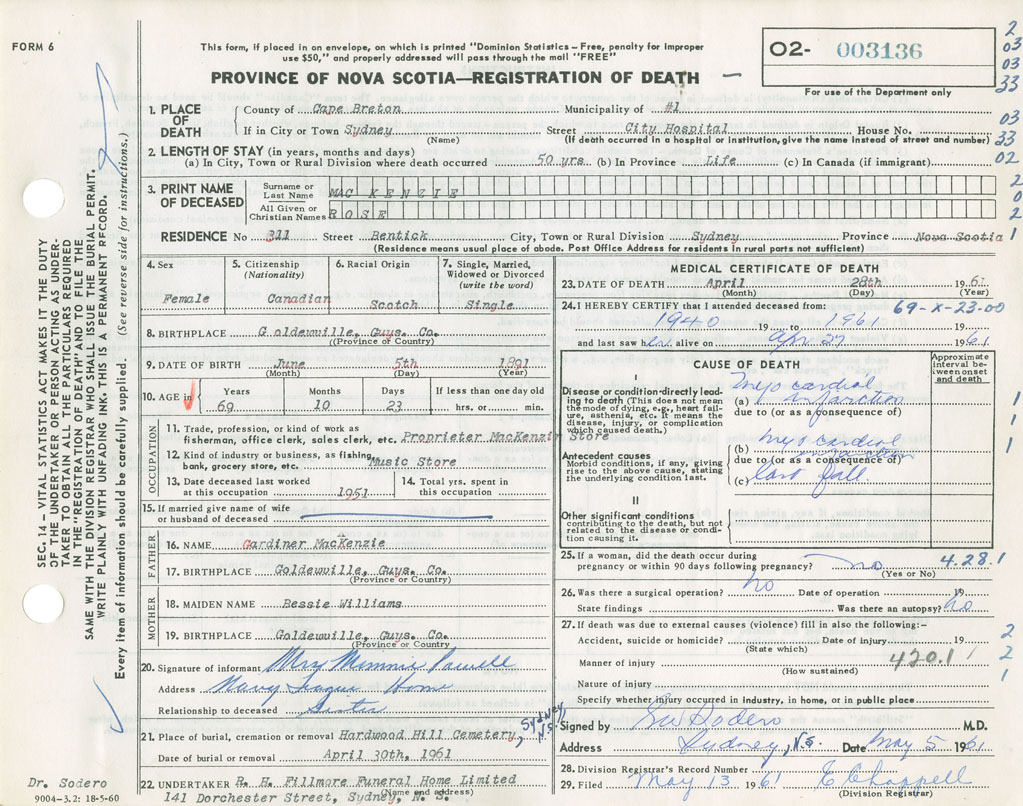 FORM 6
This form, if placed in an envelope, on which is printed "Dominion Statistics – Free, penalty for improper
use $50," and properly addressed will pass through the mail "FREE"
PROVINCE OF NOVA SCOTIA—REGISTRATION OF DEATH
02- 003136
For use of the Department only
2
03
03
33
03
33
02
2
0
2
1
SEC. 14 – VITAL STATISTICS ACT MAKES IT THE DUTY
OF THE UNDERTAKER OR PERSON ACTING AS UNDER-
TAKER TO OBTAIN ALL THE PARTICULARS REQUIRED
IN THE "REGISTRATION OF DEATH" AND TO FILE THE
SAME WITH THE DIVISION REGISTRAR WHO SHALL ISSUE THE BURIAL PERMIT.
WRITE PLAINLY WITH UNFADING INK. THIS IS A PERMANENT RECORD.
Every item of information should be carefully supplied. (See reverse side for instructions.)
1. PLACE OF DEATH
County of Cape Breton Municipality of #1
If in City or Town Sydney Street City Hospital House No.
(Name) (If death occurred in a hospital or institution, give the name instead of street and number)
2. LENGTH OF STAY (in years, months and days)
(a) In City, Town or Rural Division where death occurred 50 yrs. (b) In Province Life (c) In Canada (if immigrant)
3. PRINT NAME OF DECEASED
Surname or Last Name MAC KENZIE
All Given or Christian Names ROSE
RESIDENCE No 311 Street Bentick City, Town or Rural Division Sydney Province Nova Scotia
(Residence means usual place of abode. Post Office Address for residents in rural parts not sufficient)
4. Sex
Female
5. Citizenship (Nationality)
Canadian
6. Racial Origin
Scotch
7. Single, Married, Widowed or Divorced (write the word)
Single
8. BIRTHPLACE Goldewville, Guys. Co.
(Province or Country)
9. DATE OF BIRTH June 5th 1891
(Month) (Day) (Year)
10. AGE in Years Months Days If less than one day old
69 10 23 hrs. or min.
OCCUPATION
11. Trade, profession, or kind of work as
fisherman, office clerk, sales clerk, etc. Proprieter MacKenzie Store
12. Kind of industry or business, as fishing,
bank, grocery store, etc. Music Store
13. Date deceased last worked at this occupation 1951
14. Total yrs. spent in this occupation
15. If married give name of wife
or husband of deceased
FATHER
16. NAME Gardiner MacKenzie
17. BIRTHPLACE Goldewville, Guys. Co.
(Province or Country)
MOTHER
18. MAIDEN NAME Bessie Williams
19. BIRTHPLACE Goldewville, Guys. Co.
(Province or Country)
20. Signature of informant Mrs Mimmie Powell
Address Navy League Home
Relationship to deceased Sister
21. Place of burial, cremation or removal Hardwood Hill Cemetery, Sydney, N.S.
Date of burial or removal April 30th, 1961
22. UNDERTAKER R. H. Fillmore Funeral Home Limited
141 Dorchester Street, Sydney, N. S.
(Name and address)
Dr. Sodero
9004-3.2: 18-5-60
MEDICAL CERTIFICATE OF DEATH
23. DATE OF DEATH April 28th 1961
(Month) (Day) (Year)
24. I HEREBY CERTIFY that I attended deceased from: 69-X-23-00
1940 19 to 1961 19
and last saw her alive on Apr 27 1961
CAUSE OF DEATH
Approximate interval between onset and death
I
Disease or condition directly lead-
ing to death (This does not mean
the mode of dying, e.g., heart fail-
ure, asthenia, etc. It means the
disease, injury, or complication
which caused death.)
(a) Myocardial infarction
due to (or as a consequence of)
Antecedent causes
Morbid conditions, if any, giving
rise to the above cause, stating
the underlying condition last.
(b) Myocardial infarction
due to (or as a consequence of)
(c) last fall
II
Other significant conditions
contributing to the death, but not
related to the disease or condi-
tion causing it.
1
1
1
25. If a woman, did the death occur during
pregnancy or within 90 days following pregnancy? no
(Yes or No)
4.28.1
26. Was there a surgical operation? no Date of operation 19
State findings Was there an autopsy? no
27. If death was due to external causes (violence) fill in also the following:—
Accident, suicide or homicide? Date of injury 19
(State which)
Manner of injury 420.1
(How sustained)
Nature of injury
Specify whether injury occurred in industry, in home, or in public place
2
2
1
Signed by Sodero M.D.
Address Sydney, N.S. Date May 5 1961
28. Division Registrar's Record Number
29. Filed May 13 1961 E Chappell
(Division Registrar)